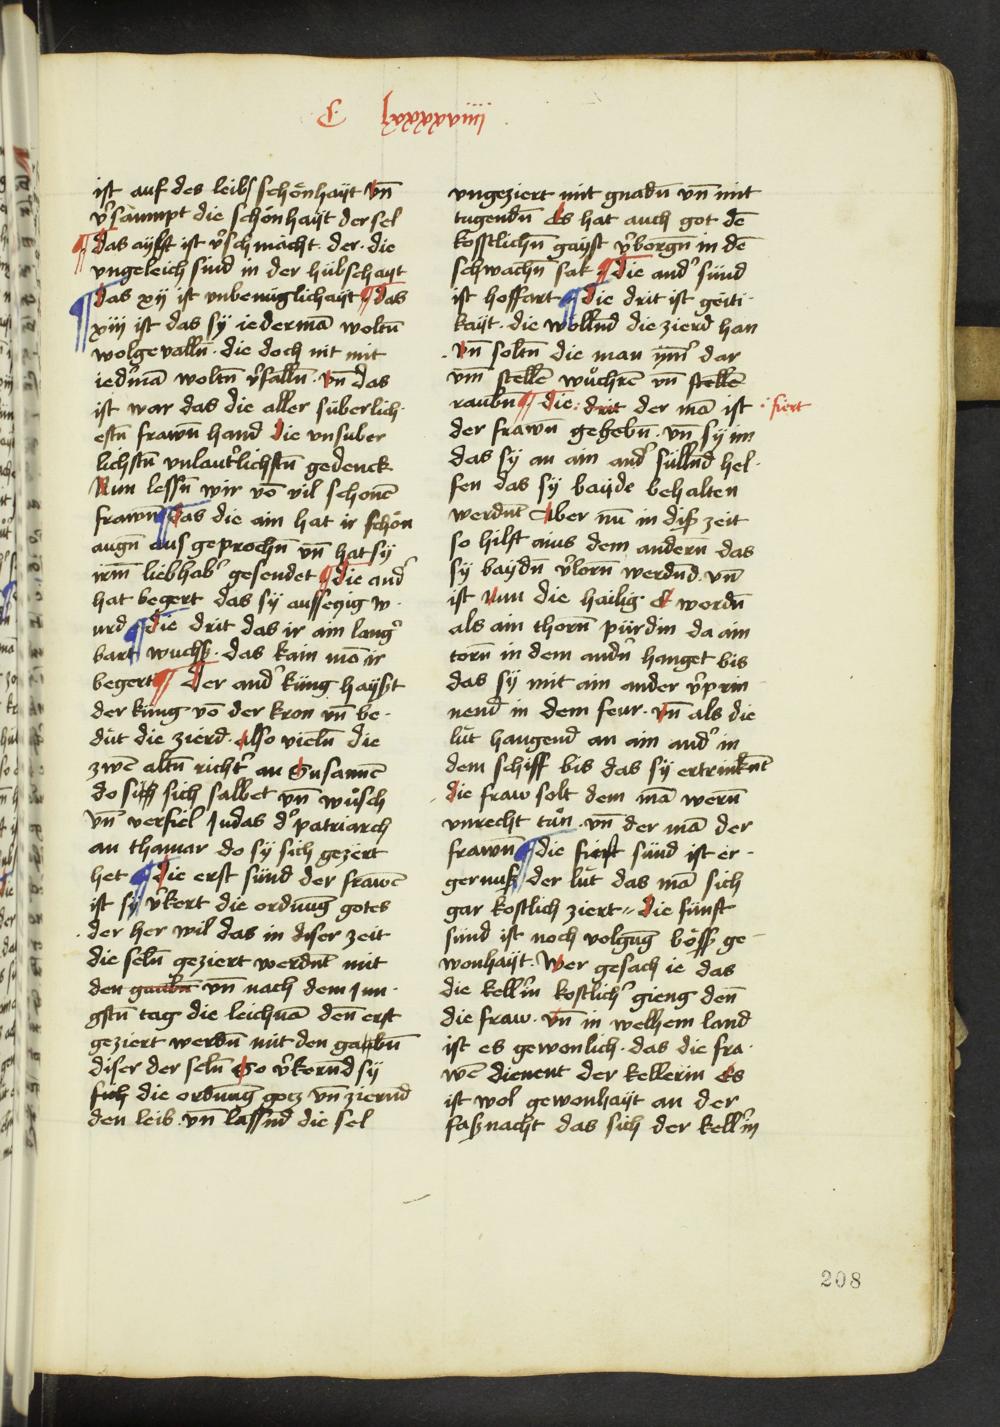 C lxxxxviiij
ist auf des leibs schönhayt vn̄
v͛sampt die schönhayt der sel
¶ das aylft ist v͛schmächt der · die
vngeleich sind in der hübschayt
¶ das xij ist vnbenüglichayt ¶ das
xiij ist das sy iederman̄ woltn̄
wolgevalln̄ · die doch nit mit
ied͛man̄ woltn̄ v͛falln̄ · vn̄ das
ist war das die aller süberlich·
estn̄ frawn̄ hand die vnsuber
lichstn̄ vnlaut͛lichstn̄ gedenck
Nun lessn̄ wir vō vil schonē
frawn̄ ¶ das die ain hat ir schön
augn̄ aus geprochn̄ vn̄ hat sy
irm̄ liebhab͛ gesendet ¶ die and͛
hat begert das sy aussetzig w·
urd ¶ die drit das ir ain lang͛
bart wuchss · das kain mā ir
begert ¶ Der and͛ küng haysst
der küng vō der kron vn̄ be·
düt die zierd · Also vieln̄ die
zwē altn̄ richt͛ an Susannē
do sich salbet vn̄ wůsch
vn̄ verfiel Judas d͛ patriarch
an thamar do sy sich geziert
het ¶ Die erst sünd der frawē
ist sy v͛kert die ordnung gotes
· der her wil das in diser zeit
die seln̄ geziert werdnt mit
den gaubn̄ vn̄ nach dem Jun·
gstn̄ tag die leichnā den̄ erst
geziert werdn̄ mit den gaubn̄
diser der seln̄ So v͛kornd sy
die ordnung gotz vn̄ ziernd
den leib · vn̄ lassnd die sel
vngeziert mit gnadn̄ vn̄ mit
tugendn̄ Es hat auch got dē
kosstlichn̄ gayst v͛borgn̄ in dē
schwachn̄ sak ¶ die and͛ sünd
ist hoffart ¶ Die drit ist geiti·
kayt · die wöllnd die zierd han
· vn̄ soltn̄ die man ym͛ dar
vm̄ stellē wůchrē vn̄ stellē
raubn̄ ¶ Die : drit der mā ist · fiert
der frawn̄ gehebn̄ · vn̄ sy im
das sy an ain and͛ süllnd hel·
fen das sy bayde behalten
werdnt Aber nu̅ in diss zeit
so hilft ains dem andern̄ das
sy baydn̄ v͛lorn̄ werdnd · vn̄
ist Nun die hailig E wordn̄
als ain thorn̄ pürdin da ain
torn̄ in dem andn̄ hanget bis
das sy mit ain ander v͛prin
nend in dem feur · vn̄ als die
lüt hangend an ain and͛ in
dem schiff bis das sy ertrinknt
die fraw solt dem mā wern̄
vnrecht tůn · vn̄ der mā der
frawn̄ ¶ die fierst sünd ist er·
gernuss der lüt das mā sich
gar kostlich ziert Die fünft
sünd ist noch volgūg böss ge
wonhayt · Wer gesach ie das
die kell͛in kostlich͛ gieng den̄
die fraw · vn̄ in welhem land
ist es gewonlich · das die fra·
wē dienent der kellerin Es
ist wol gewonhayt an der
fassnacht das sich der kell͛in
208